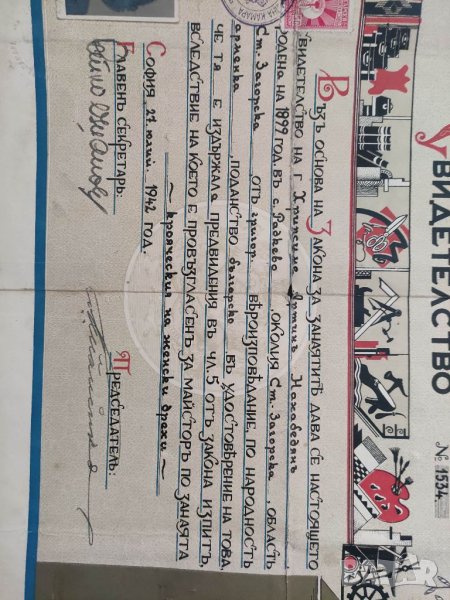 Свидетелство
№ 1534
Възъ основа на Закона за занаятитѣ дава се настоящето
свидетелство на г Хрипсиме Артинъ Нахабедянъ
родена на 1899 год. въ с. Раднево околия Ст. Загорска, область
Ст. Загорска отъ григор. вѣроизповѣдание, по народность
арменка, поданство българско въ удостовѣрение на това,
че тя е издържала предвидения въ чл. 5 отъ закона изпитъ,
вследствие на което е провъзгласенъ за майсторъ по занаята
~ кроячески на женски дрехи ~
София, 27 юлий 1942 год.
Главенъ секретарь:
Председатель: